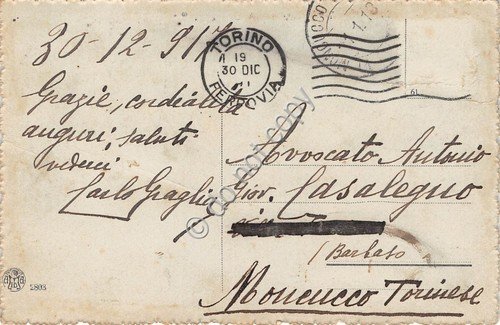 30-12-917
Grazie, cordialità
auguri, saluti
vederci
Carlo Graglia
TORINO
19
30 DIC
FERROVIA
Avvocato Antonio
Giov. Casalegno
(Barbaso
Moncucco Torinese
2803
61
do not copy